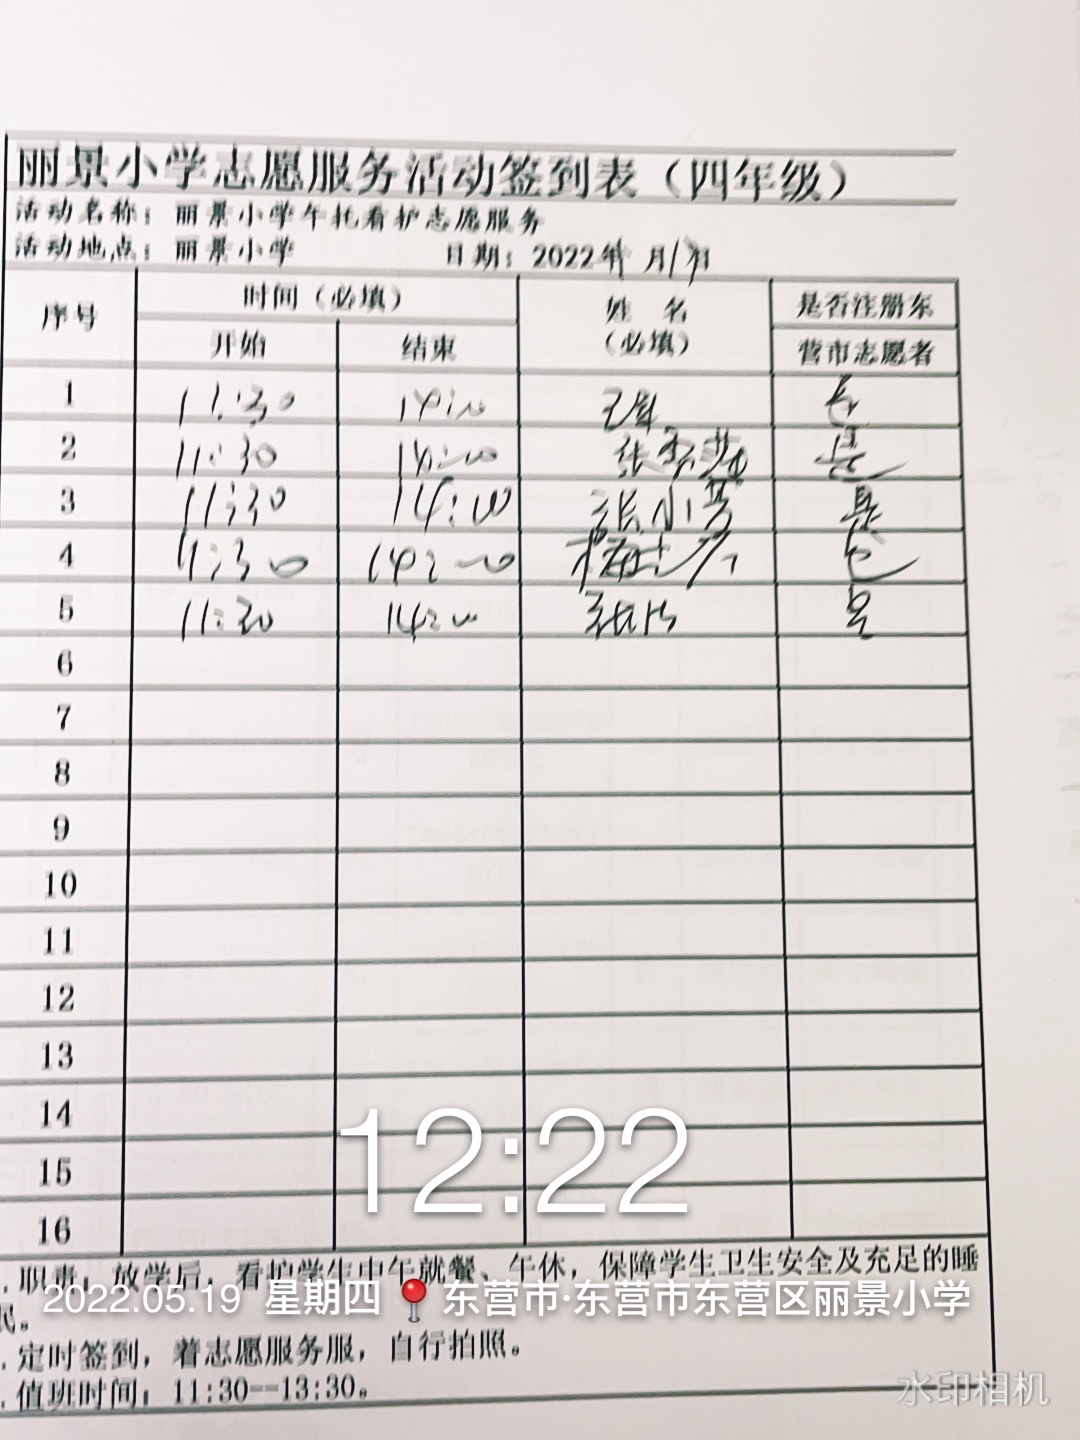 丽景小学志愿服务活动签到表（四年级）
活动名称：丽景小学午托看护志愿服务
活动地点：丽景小学 日期：2022年 月 日
序号 时间（必填） 姓 名 是否注册东
开始 结束 （必填） 营市志愿者
1 11:30 14:00 是
2 11:30 14:00 张 是
3 11:30 14:00 张小 是
4 11:30 14:00 是
5 11:30 14:00 张 是
6
7
8
9
10
11
12
13
14
15
16
12:22
.职责：放学后，看护学生中午就餐、午休，保障学生卫生安全及充足的睡
眠。
2022.05.19 星期四 东营市·东营市东营区丽景小学
.定时签到，着志愿服务服，自行拍照。
.值班时间：11:30--13:30。
水印相机